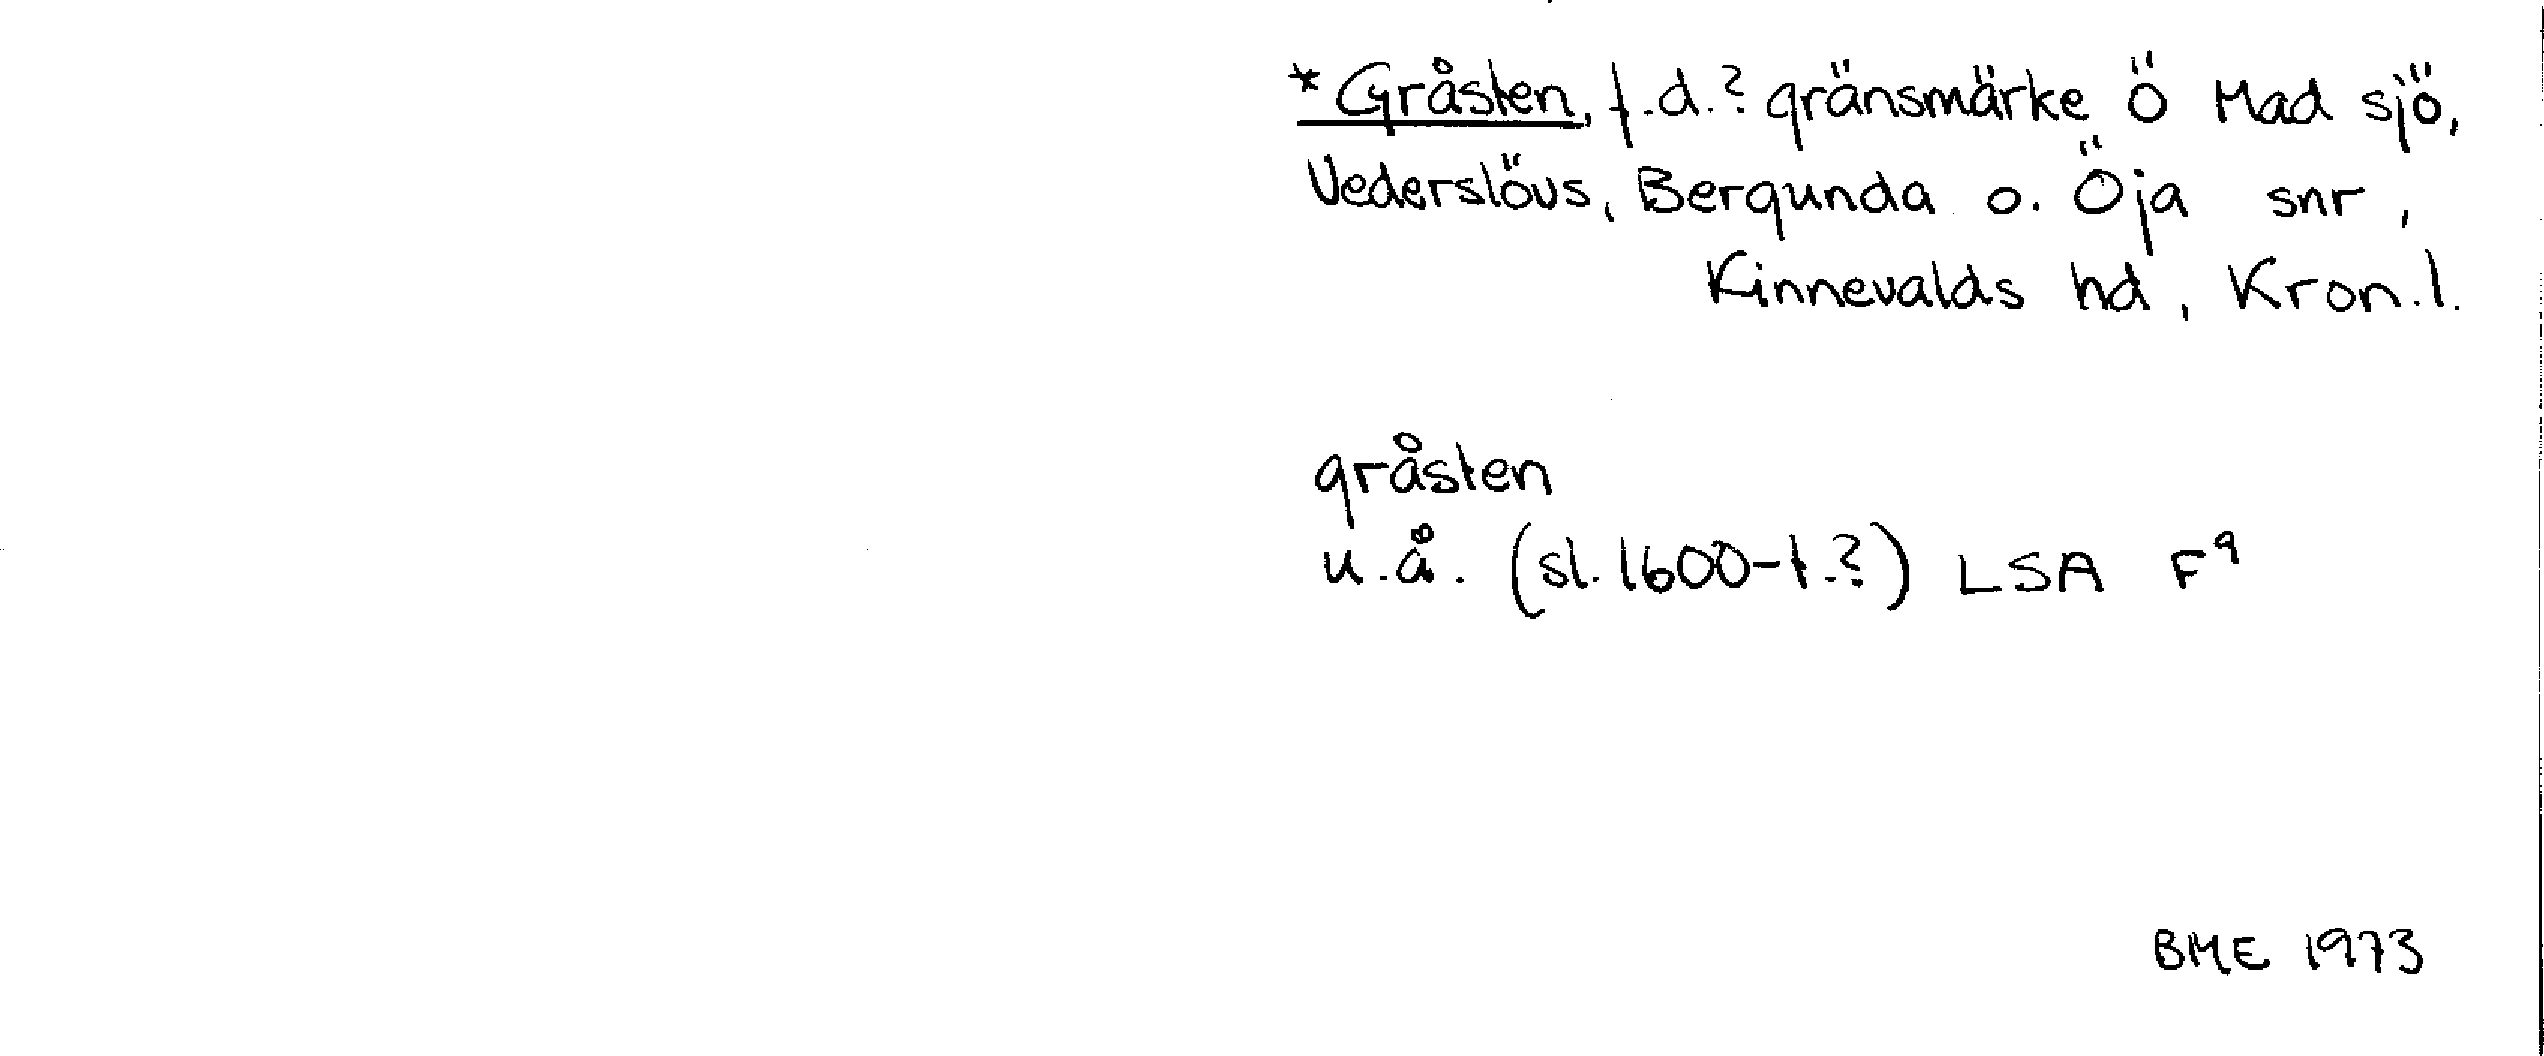 *Gråsten, f.d.? gränsmärke Ö Mad sjö,
Vederslövs, Bergunda o. Öja snr,
Kinnevalds hd, Kron.l.
gråsten
u.å. (sl. 1600-t.?) LSA F⁹
BME 1973